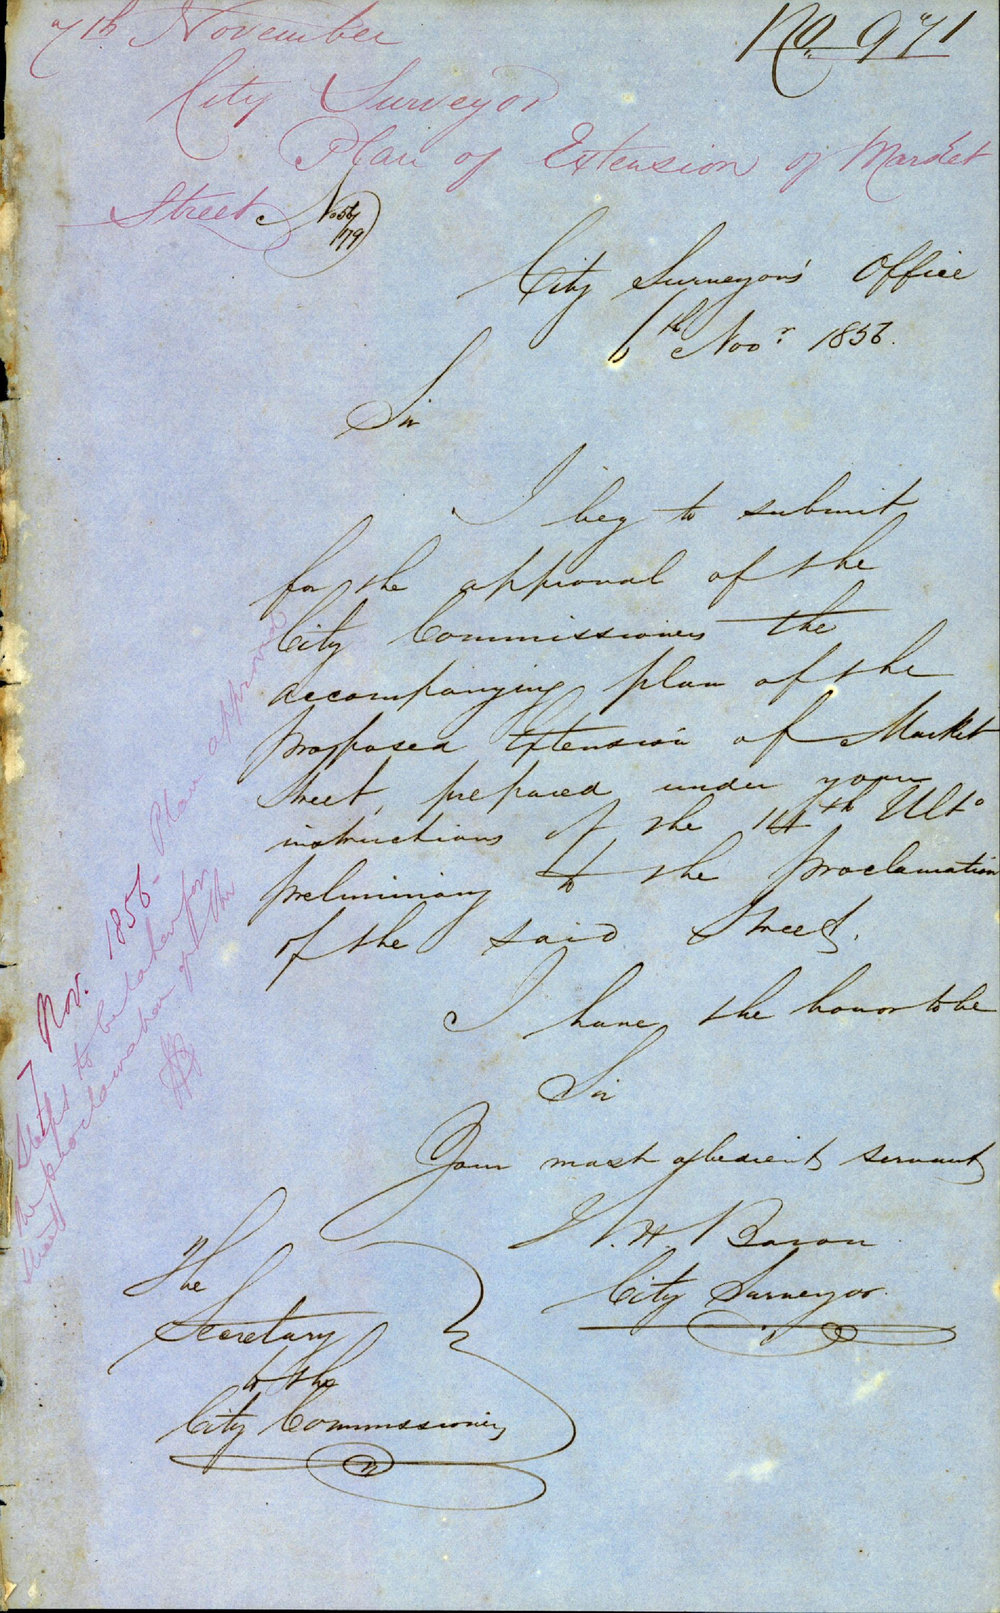 No. 971
7th November
City Surveyor
Plan of Extension of Market
Street
No 56/179
City Surveyor's Office
6th Novr 1856.
Sir
I beg to submit
for the approval of the
City Commissioners the
accompanying plan of the
proposed Extension of Market
Street, prepared under your
instructions of the 14th Ulto
preliminary to the proclamation
of the said Street.
I have the honor to be
Sir
Your most obedient servant
City Surveyor.
The
Secretary
to the
City Commissioners
7 Nov. 1856 - Plan approved
Steps to be taken for
the proclamation of the
Street